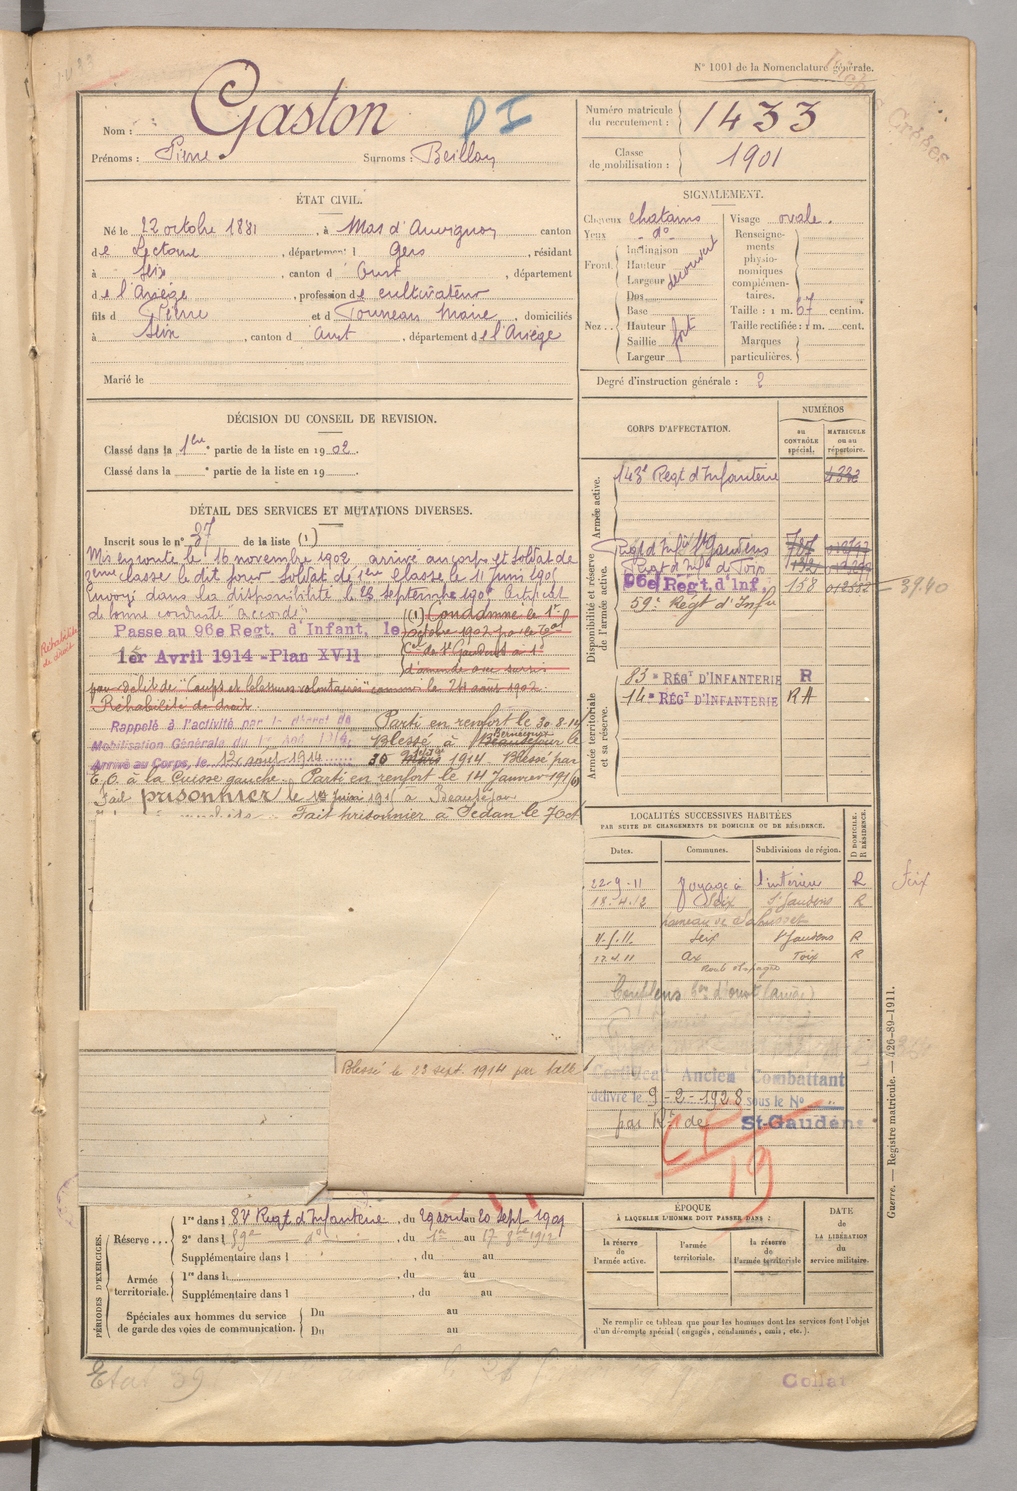 N° 1001 de la Nomenclature générale.
Nom : Gaston
P I
Prénoms : Pierre Surnoms : Beillon
Numéro matricule du recrutement : 1433
Classe de mobilisation : 1901
ÉTAT CIVIL.
Né le 22 octobre 1881, à Mas d'Auvignon canton
de Lectoure, département du Gers, résidant
à Seix, canton d'Oust, département
de l'Ariège, profession de cultivateur
fils d Pierre et d Tourneau Marie, domiciliés
à Seix, canton d Oust, département de l'Ariège
Marié le
SIGNALEMENT.
Cheveux chatains
Yeux d°
Front. Inclinaison
Hauteur
Largeur
découvert
Nez.. Dos
Base
Hauteur
Saillie
Largeur
fort
Visage ovale.
Renseignements physionomiques complémentaires.
Taille : 1 m. 67 centim.
Taille rectifiée : 1 m. cent.
Marques particulières.
Degré d'instruction générale : 2
DÉCISION DU CONSEIL DE REVISION.
Classé dans la 1ere partie de la liste en 1902.
Classé dans la partie de la liste en 19
DÉTAIL DES SERVICES ET MUTATIONS DIVERSES.
Inscrit sous le n° 37 de la liste (1)
Mis en route le 16 novembre 1902 arrivé au corps et soldat de
2eme classe le dit jour. Soldat de 1ere classe le 11 juin 190
Envoyé dans la disponibilité le 23 septembre 190 Certificat
de bonne conduite "accordé"
Passe au 96e Regt. d'Infant. le
1er Avril 1914 - Plan XVII
(1) Condamné le 1er
octobre 1902 par le Tal
Cel de St Gaudens à
d'amende avec sursis
par délit de "Coups et blessures volontaires" commis le 24 août 1902.
Réhabilité de droit.
Réhabilité de droit
Rappelé à l'activité par le décret de
Mobilisation Générale du 1er Août 1914.
Arrivé au Corps, le 12 août 1914
Parti en renfort le 30.8.14
Blessé à Beauséjour le
30 Mars 1914 Blessé par
E.O. à la Cuisse gauche. Parti en renfort le 14 Janvier 1916
Fait prisonnier le juin 191 à Beauséjour
Fait prisonnier à Sedan le 7 Oct
Blessé le 23 sept. 1914 par balle
CORPS D'AFFECTATION.
NUMÉROS
au CONTRÔLE spécial.
MATRICULE ou au répertoire.
Armée active.
143e Regt d'Infanterie 4332
Disponibilité et réserve de l'armée active.
Regt d'Infie St Gaudens 787
Regt d'Infie de Foix
96e Regt. d'Inf. 158 3940
59e Regt d'Infie
Armée territoriale et sa réserve.
83e RÉGT D'INFANTERIE R
14e RÉGT D'INFANTERIE RA
LOCALITÉS SUCCESSIVES HABITÉES
PAR SUITE DE CHANGEMENTS DE DOMICILE OU DE RÉSIDENCE.
Dates. Communes. Subdivisions de région. D DOMICILE. R RÉSIDENCE.
22-9-11 voyage à l'intérieur R Seix
18-4-12 Seix St Gaudens R
hameau de
Seix St Gaudens R
17.4.11 Ax Foix R
Couflens con d'Oust (Ariège)
Certificat Ancien Combattant
délivré le 9-2-1928 sous le N°
par Rt de St-Gaudens
19
PÉRIODES D'EXERCICES.
Réserve... 1re dans l 8 Regt d'Infanterie, du 29 août au 20 sept 1909
2e dans l 59e d°, du 1er au 17 8bre 1912
Supplémentaire dans l , du au
Armée territoriale. 1re dans l , du au
Supplémentaire dans l , du au
Spéciales aux hommes du service de garde des voies de communication. Du au
Du au
ÉPOQUE
À LAQUELLE L'HOMME DOIT PASSER DANS :
la réserve de l'armée active.
l'armée territoriale.
la réserve de l'armée territoriale
DATE de LA LIBÉRATION du service militaire.
Ne remplir ce tableau que pour les hommes dont les services font l'objet
d'un décompte spécial (engagés, condamnés, omis, etc.).
Guerre. — Registre matricule. — 426-89-1911.
Etat 39